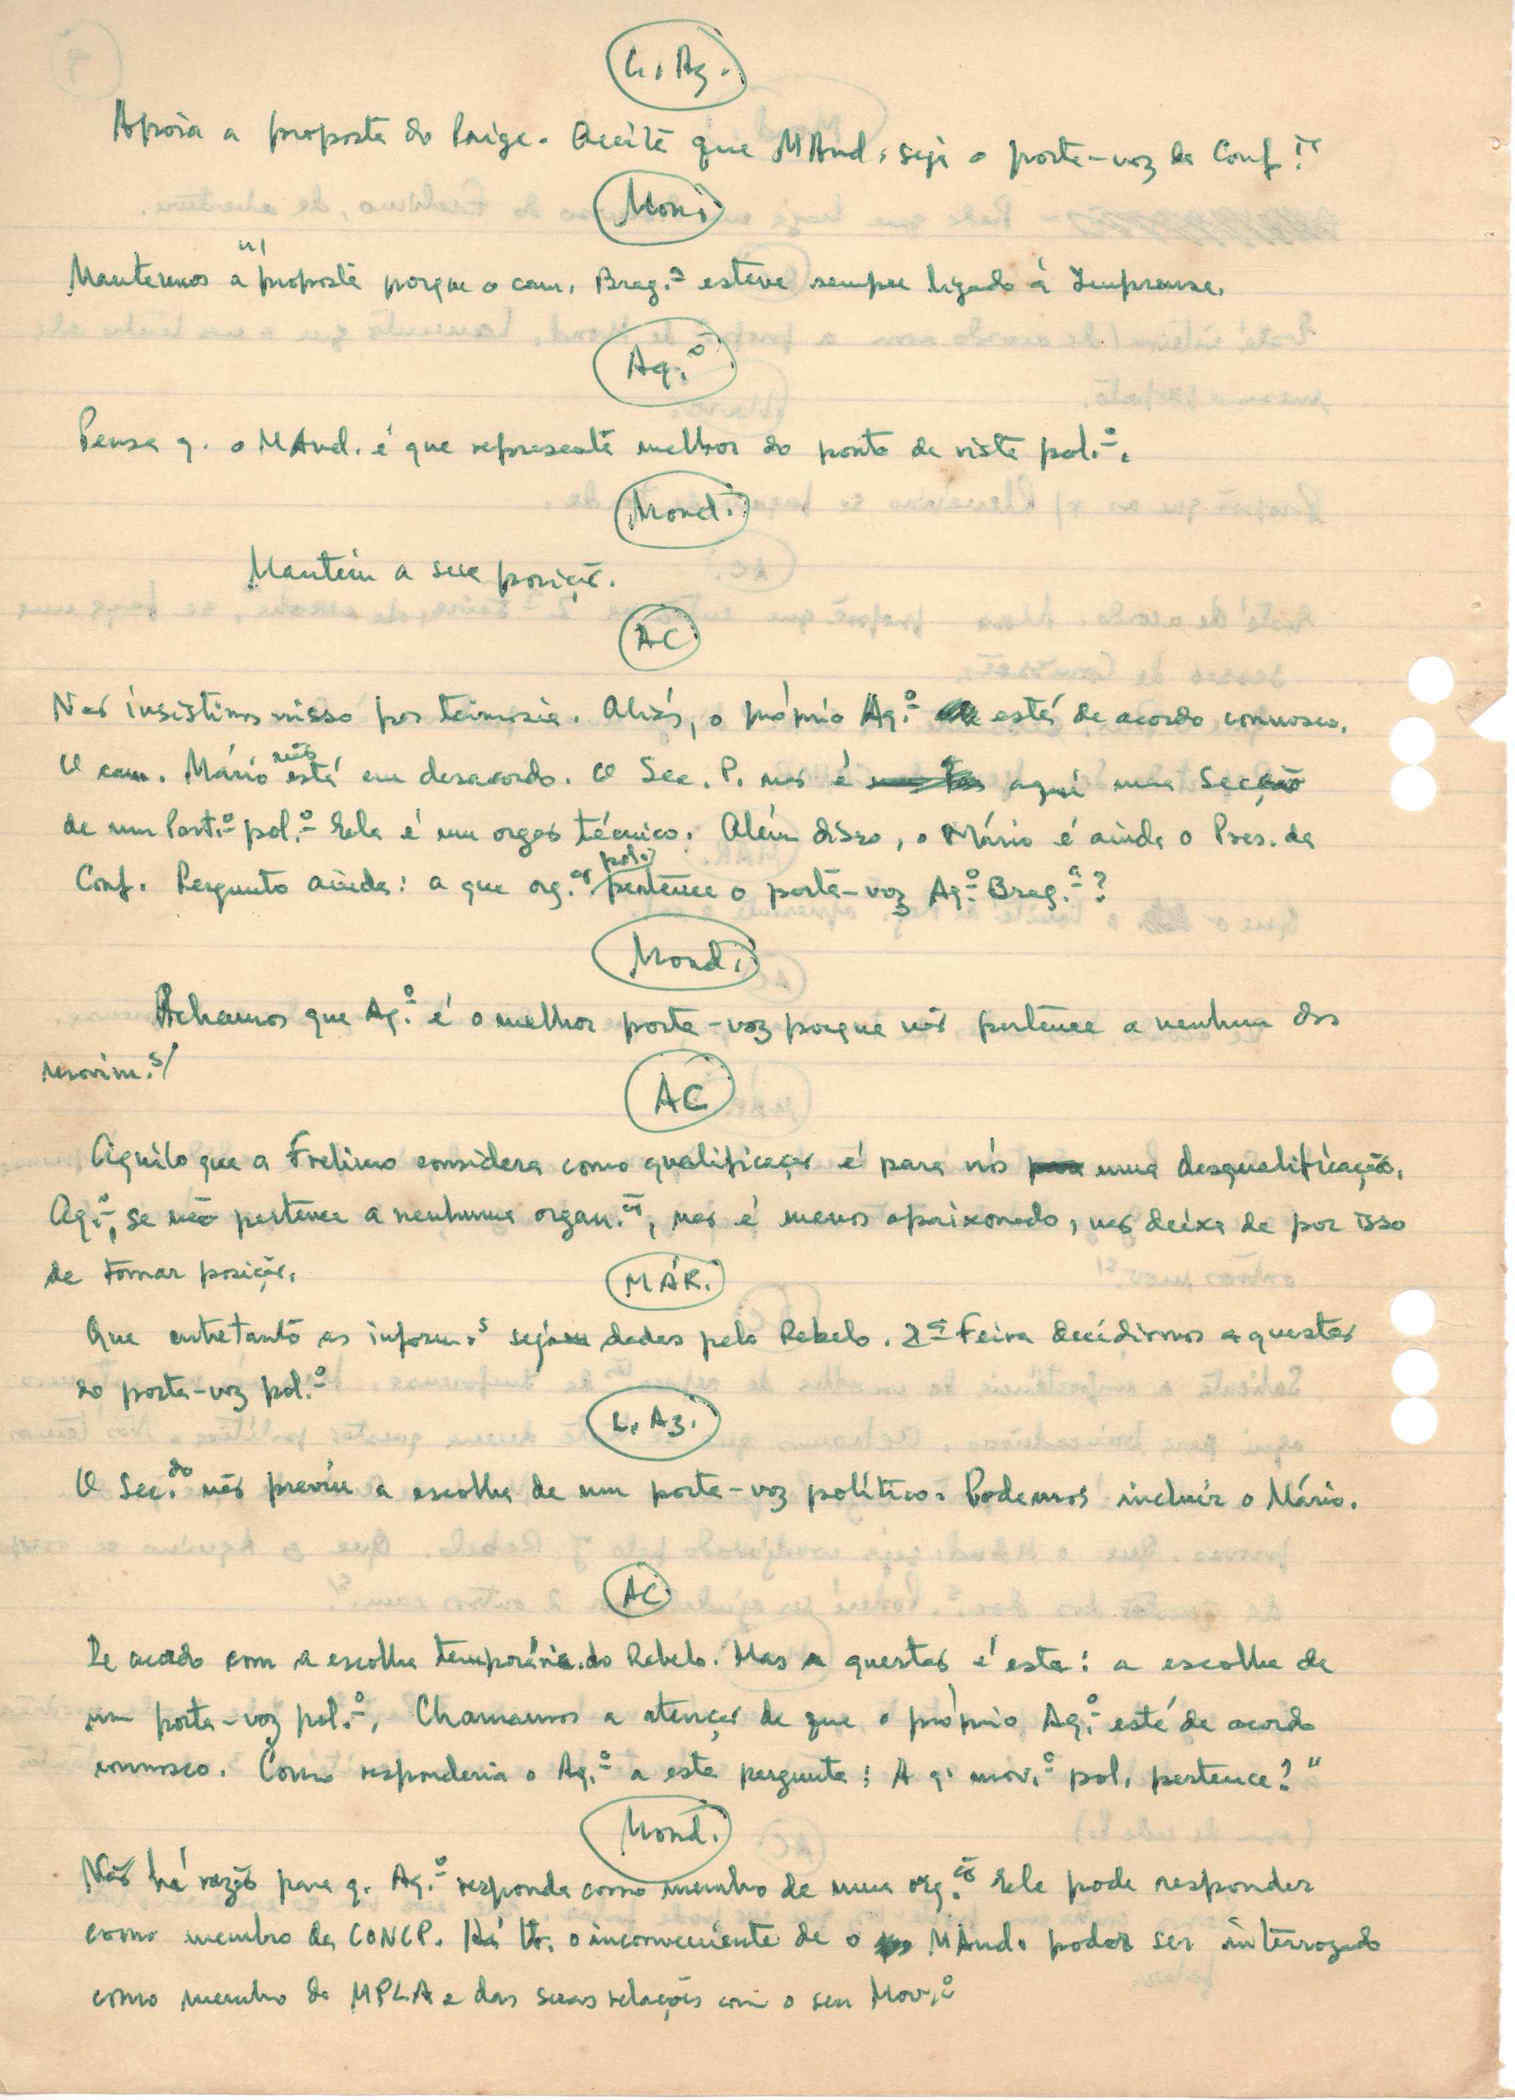 L. Az.
Apoia a proposta do Paigc. Aceita que MAnd. seja o porta-voz da Conf.
Mond.
Mantemos a proposta porque o cam. Brag.ª esteve sempre ligado à Imprensa.
Aq.º
Pensa q. o MAnd. é que representa melhor do ponto de vista pol.º.
Mond.
Mantém a sua posição.
AC
Não insistimos nisso por teimosia. Aliás, o próprio Aq.º está de acordo connosco.
O cam. Mário não está em desacordo. O Sec. P. não é aqui uma Secção
de um Part.º pol.º Ela é um orgão técnico. Além disso, o Mário é ainda o Pres. da
Conf. Pergunto ainda: a que org.ão pol. pertence o porta-voz Aq.º Brag.ª?
Mond.
Achamos que Aq.º é o melhor porta-voz porque não pertence a nenhum dos
movim.s/
AC
Aquilo que a Frelimo considera como qualificação é para nós uma desqualificação.
Aq.º, se não pertence a nenhuma organ.ão, não é menos apaixonado, não deixa de por isso
de tomar posição.
MÁR.
Que entretanto as inform.s sejam dadas pelo Rebelo. 2ª Feira decidimos a questão
do porta-voz pol.º
L. Az.
O Sec.do não previu a escolha de um porta-voz político. Podemos incluir o Mário.
AC
De acordo com a escolha temporária do Rebelo. Mas a questão é esta: a escolha de
um porta-voz pol.º. Chamamos a atenção de que o próprio Aq.º está de acordo
connosco. Como responderia o Aq.º a esta pergunta: A q. mov.º pol. pertence?"
Mond.
Não há razão para q. Aq.º responda como membro de uma org.ão Ele pode responder
como membro da CONCP. Há tb. o inconveniente de o MAnd. poder ser interrogado
como membro do MPLA e das suas relações com o seu Mov.º